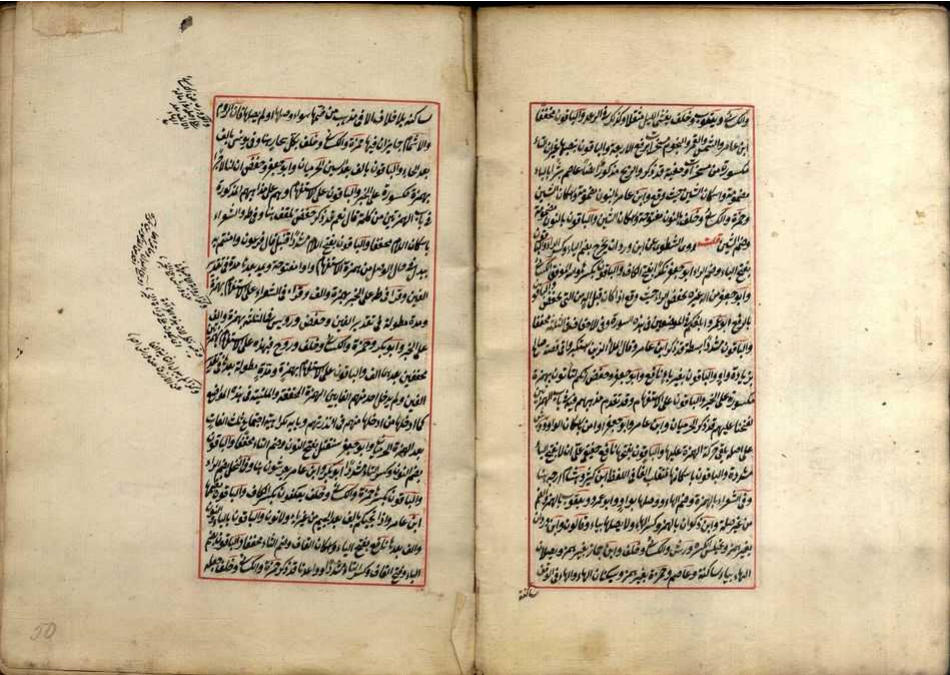 والكسائي ويعقوب وخلف يغشى الليل مثقلا وكذلك في الرعد والباقون مخففا
ابن عامر والشمس والقمر والنجوم مسخرات برفع الاربعة والباقون بنصبها غير ان التاء
مكسورة من مسخرات وخفية قد ذكر والريح مذكور ايضا عاصم بشرا بالباء
مضمومة واسكان الشين حيث وقع وابن عامر بالنون مضمومة واسكان الشين
وحمزة والكسائي وخلف بالنون مفتوحة واسكان الشين والباقون بالنون مضمومة
وضم الشين قلت روى الشطوي عن ابن وردان يخرج بضم الياء وكسر الراء والباقون
بفتح الياء وضم الراء ابو جعفر نكدا بفتح الكاف والباقون بكسرها الكسائي
وابو جعفر من اله غيره بخفض الراء حيث وقع اذا كان قبل اله من التي تخفض والباقون
بالرفع ابو عمرو ابلغكم في الموضعين في هذه السورة وفي الاحقاف في الثلثة مخففا
والباقون مشددا بسطة قد ذكر ابن عامر وقال الملأ الذين استكبروا في قصة صالح
بزيادة واو والباقون بغير واو نافع وابو جعفر وحفص انكم لتاتون بهمزة
مكسورة على الخبر والباقون على الاستفهام وقد تقدم مذهبهم فيه في باب الهمزتين
لفتحنا عليهم قد ذكر الحرميان وابن عامر وابو جعفر او امن باسكان الواو وورش
على اصله يلقي حركة الهمزة عليها والباقون بفتحها نافع حقيق علي ان لا بفتح الياء
مشددة والباقون باسكانها فتنقلب الفا في اللفظ ابن كثير وهشام ارجئه هنا
وفي الشعراء بالهمزة وضم الهاء ووصلها بواو وابو عمرو ويعقوب بالهمزة والضم
من غير صلة وابن ذكوان بالهمز وكسر الهاء ولا يصلها بياء وقالون وابن وردان
بغير همز ويختلسان الكسرة وورش والكسائي وخلف وابن جماز بغير همز ويصلان
الهاء بياء ساكنة وعاصم وحمزة بغير همز ويسكنان الهاء والهاء في الوقف
ساكنة
ساكنة بلا خلاف الا في مذهب من ضمها سواء وصلها او لم يصلها فان الروم
والاشمام جايزان فيها حمزة والكسائي وخلف بكل سحار هنا وفي يونس بالف
بعد الحاء والباقون بالف بعد السين الحرميان وابو جعفر وحفص ان لنا لاجرا
بهمزة مكسورة على الخبر والباقون على الاستفهام وهم على مذاهبهم المذكورة
في باب الهمزتين من كلمة قال نعم قد ذكر حفص تلقف هنا وفي طه والشعراء
باسكان اللام مخففا والباقون بفتح اللام مشددا قنبل قال فرعون وامنتم به
يبدل في حال الوصل من همزة الاستفهام واوا مفتوحة وبعدها مدة في تقدير
الفين وقرأ في طه على الخبر بهمزة والف وقرأ في الشعراء على الاستفهام بهمزة
ومدة مطولة في تقدير الفين وحفص ورويس في الثلثة بهمزة والف
على الخبر وابو بكر وحمزة والكسائي وخلف وروح فيهن على الاستفهام بهمزتين
محققتين بعدهما الف والباقون على الاستفهام بهمزة ومدة مطولة بعدها في تقدير
الفين ولم يدخل احد منهم الفا بين الهمزة المحققة والملينة في هذه المواضع
كما ادخلها من ادخلها منهم في انذرتهم وبابه كراهية اجتماع ثلث الفات
بعد الهمزة الحرميان وابو جعفر سنقتل بفتح النون وضم التاء مخففا والباقون
بضم النون وكسر التاء مشددا ابو بكر وابن عامر يعرشون هنا وفي النحل بضم الراء
والباقون بكسرها حمزة والكسائي وخلف يعكفون بكسر الكاف والباقون بضمها
ابن عامر واذ انجيكم بالف بعد الجيم من غير ياء ولا نون والباقون بالياء والنون
والف بعدها نافع يقتلون بفتح الياء واسكان القاف وضم التاء مخففا والباقون بضم
الياء وفتح القاف وكسر التاء مشددا وواعدنا قد ذكر حمزة والكسائي وخلف جعله
50